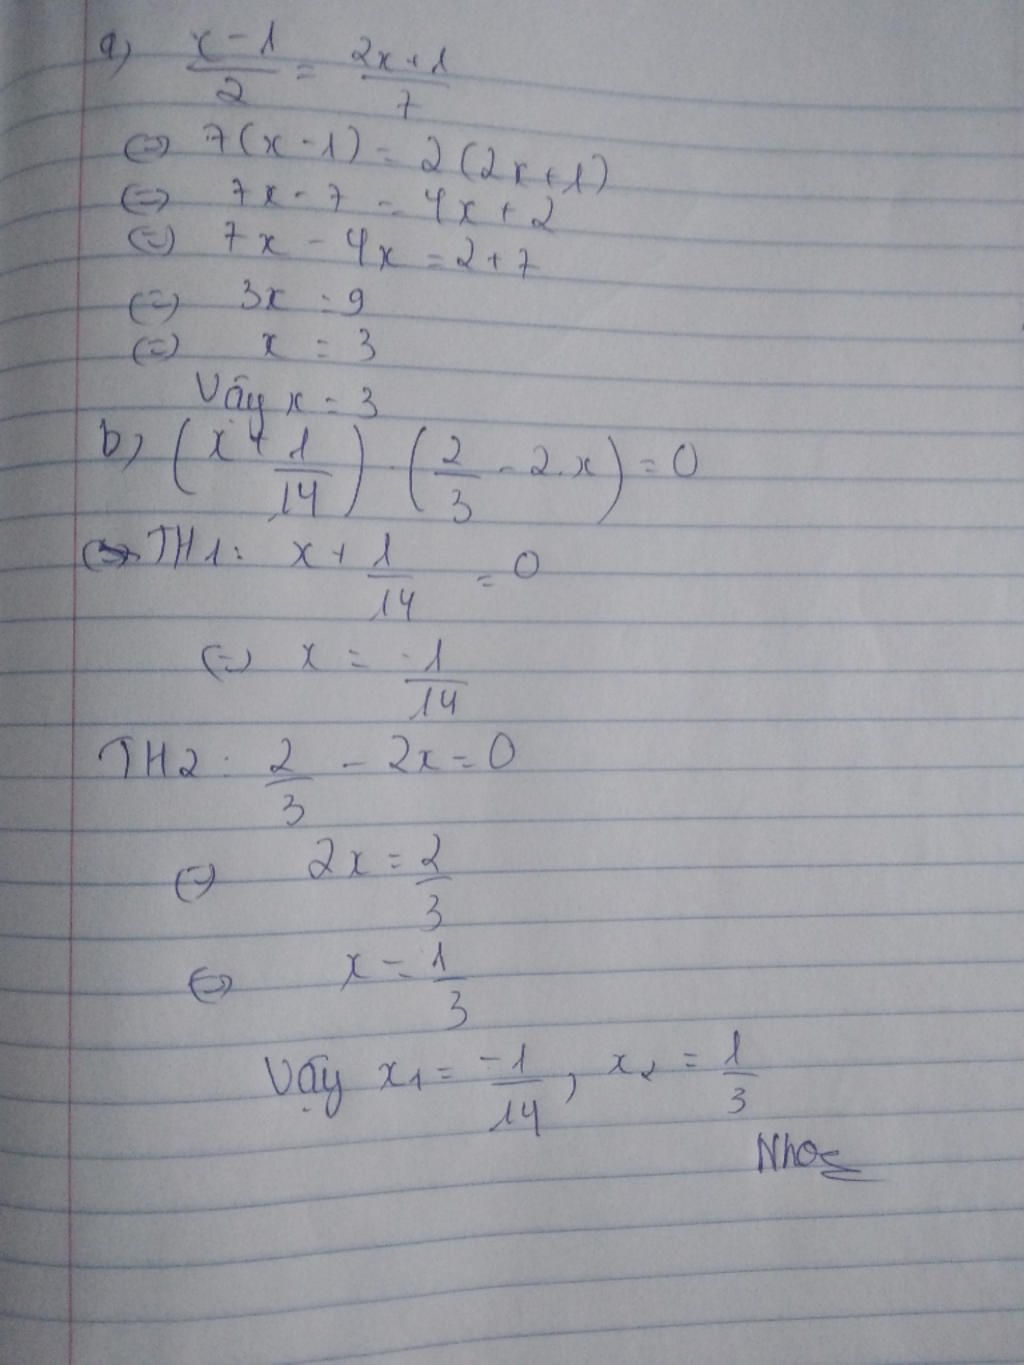 a) \frac{x-1}{2} = \frac{2x+1}{7}
(=) 7(x-1) = 2(2x+1)
(=) 7x - 7 = 4x + 2
(=) 7x - 4x = 2 + 7
(=) 3x = 9
(=) x = 3
Vậy x = 3
b) (x + \frac{1}{14}) . (\frac{2}{3} - 2.x) = 0
TH1: x + \frac{1}{14} = 0
(=) x = \frac{-1}{14}
TH2: \frac{2}{3} - 2x = 0
(=) 2x = \frac{2}{3}
(=) x = \frac{1}{3}
Vậy x₁ = \frac{-1}{14}, x₂ = \frac{1}{3}